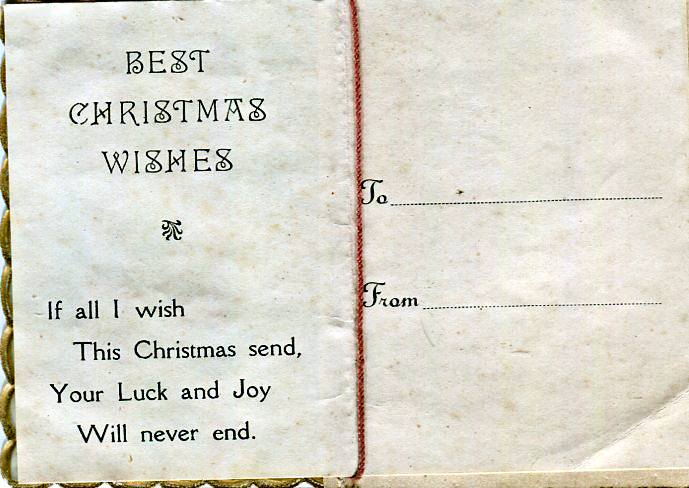 BEST
CHRISTMAS
WISHES
If all I wish
This Christmas send,
Your Luck and Joy
Will never end.
To
From